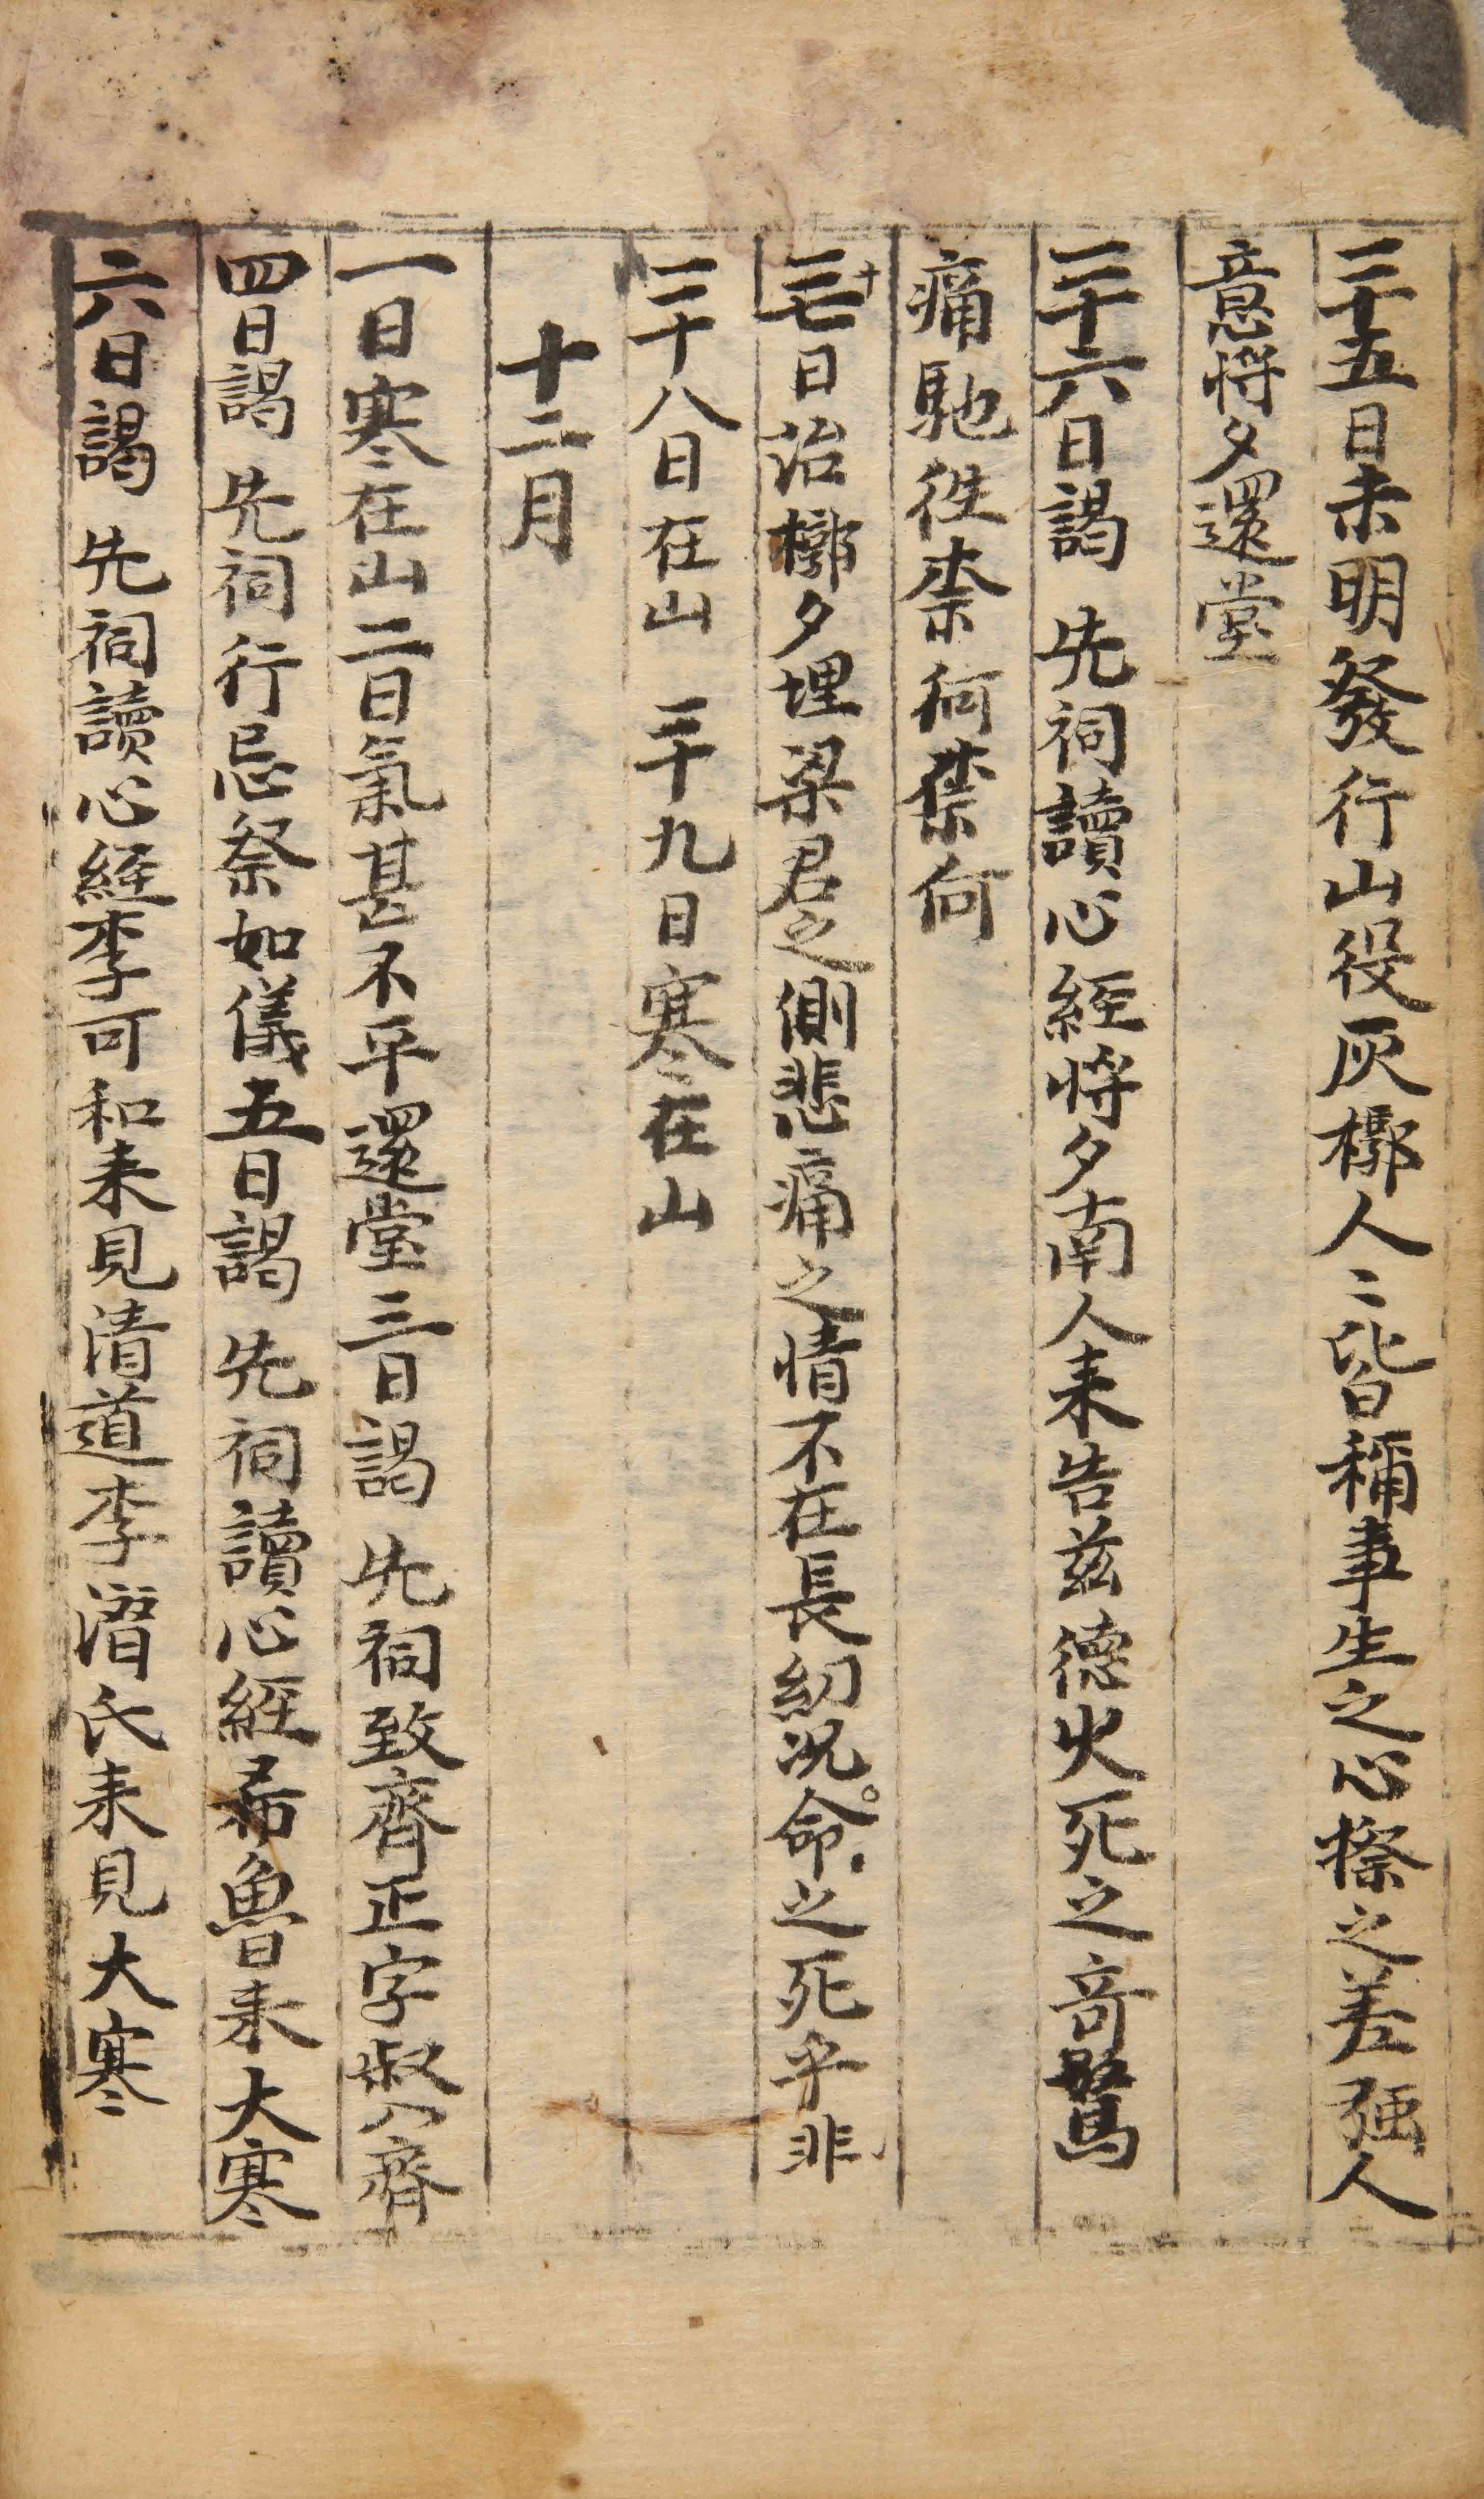 二十五日未明發行山役灰槨人〻皆稱事生之心際之差强人
意將夕還堂
二十六日謁 先祠讀心經將夕南人来告兹德火死之奇驚
痛馳徃柰何柰何
二十七日治槨夕埋梁君之側悲痛之情不在長幼况命之死乎非
二十八日在山 二十九日寒在山
十二月
一日寒在山二日氣甚不平還堂三日謁 先祠致齊正字叔入齊
四日謁 先祠行忌祭如儀五日謁 先祠讀心經希魯来大寒
六日謁 先祠讀心經李可和来見清道李濳氏来見大寒